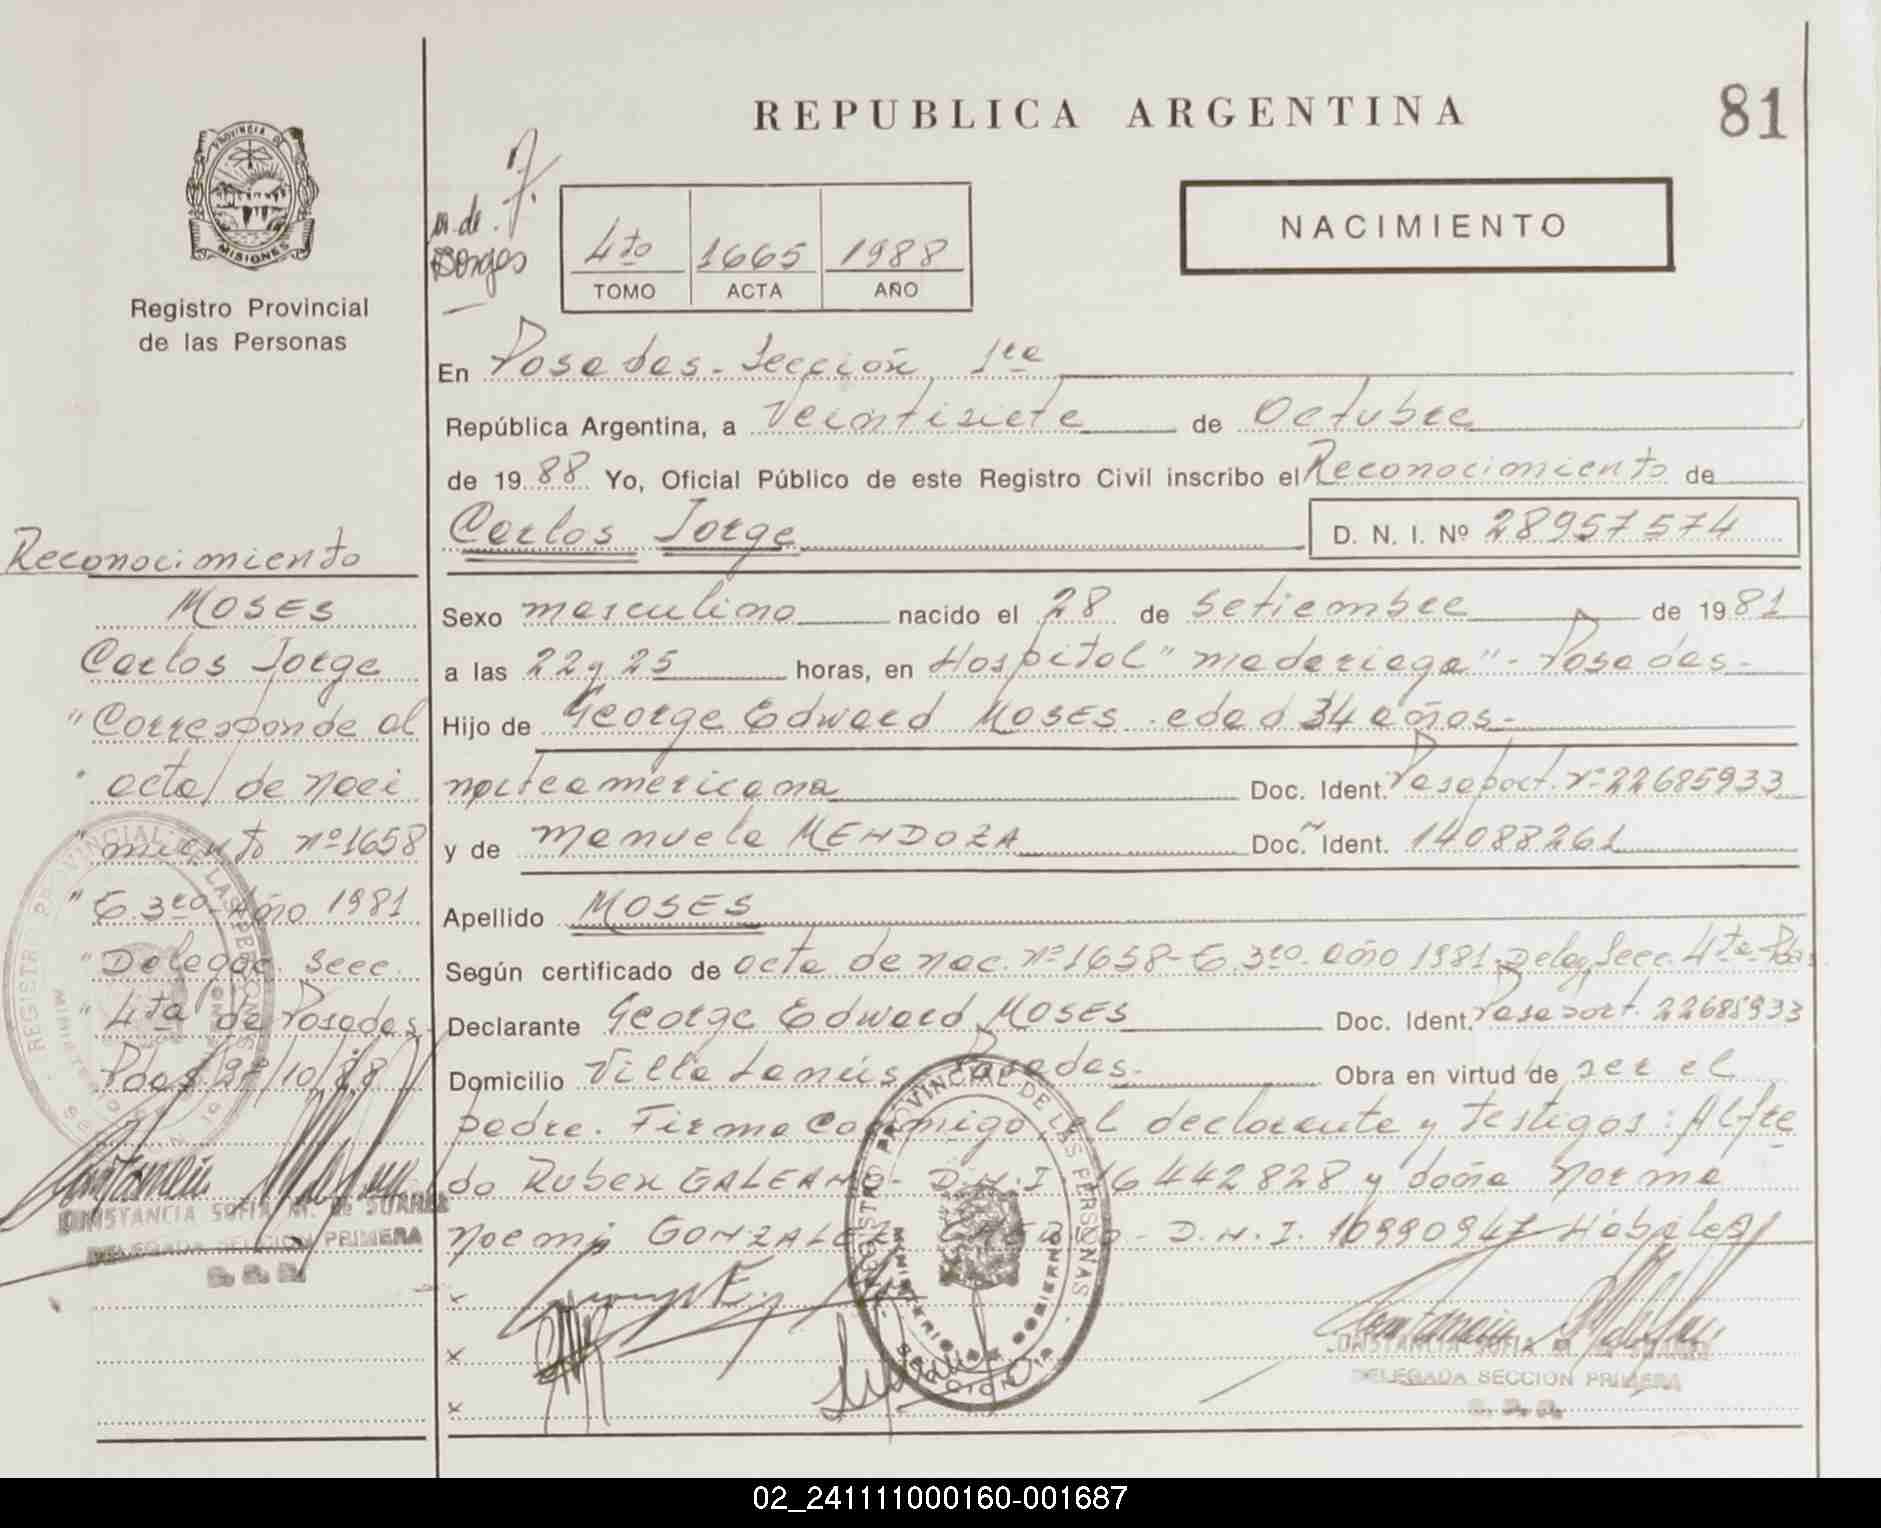 REPUBLICA ARGENTINA
81
PROVINCIA DE
MISIONES
Registro Provincial
de las Personas
NACIMIENTO
4to 1665 1988
TOMO ACTA AÑO
En Posadas - Sección 1ra
República Argentina, a Veintisiete de Octubre
de 1988 Yo, Oficial Público de este Registro Civil inscribo el Reconocimiento de
Carlos Jorge D. N. I. Nº 28957574
Sexo masculino nacido el 28 de Setiembre de 1981
a las 22 y 25 horas, en Hospital "Madariaga" - Posadas -
Hijo de George Edward MOSES - edad 34 años -
norteamericana Doc. Ident. Pasaport. nº 22685933
y de Manuela MENDOZA Doc. Ident. 14088261
Apellido MOSES
Según certificado de acta de nac. nº 1658 - T. 3ro - año 1981 - Deleg. Secc. 4ta - Pdas
Declarante George Edward MOSES Doc. Ident. Pasaport. 22685933
Domicilio Villa Lanús Posadas - Obra en virtud de ser el
padre. Firma conmigo, el declarante y testigos: Alfre
do Ruben GALEANO - D.N.I 16442828 y doña Norma
Noemi GONZALEZ - D.N.I. 10990947 - Hábiles
Reconocimiento
MOSES
Carlos Jorge
"Corresponde al
" acta de naci
" miento nº 1658
" T. 3ro - Año 1981
" Delegac. Secc.
" 4ta de Posadas -
Pdas 27/10/88
CONSTANCIA SOFIA M. de SUAREZ
DELEGADA SECCION PRIMERA
REGISTRO PROVINCIAL DE LAS PERSONAS
MINISTERIO DE GOBIERNO
CONSTANCIA SOFIA M. de SUAREZ
DELEGADA SECCION PRIMERA
02_241111000160-001687